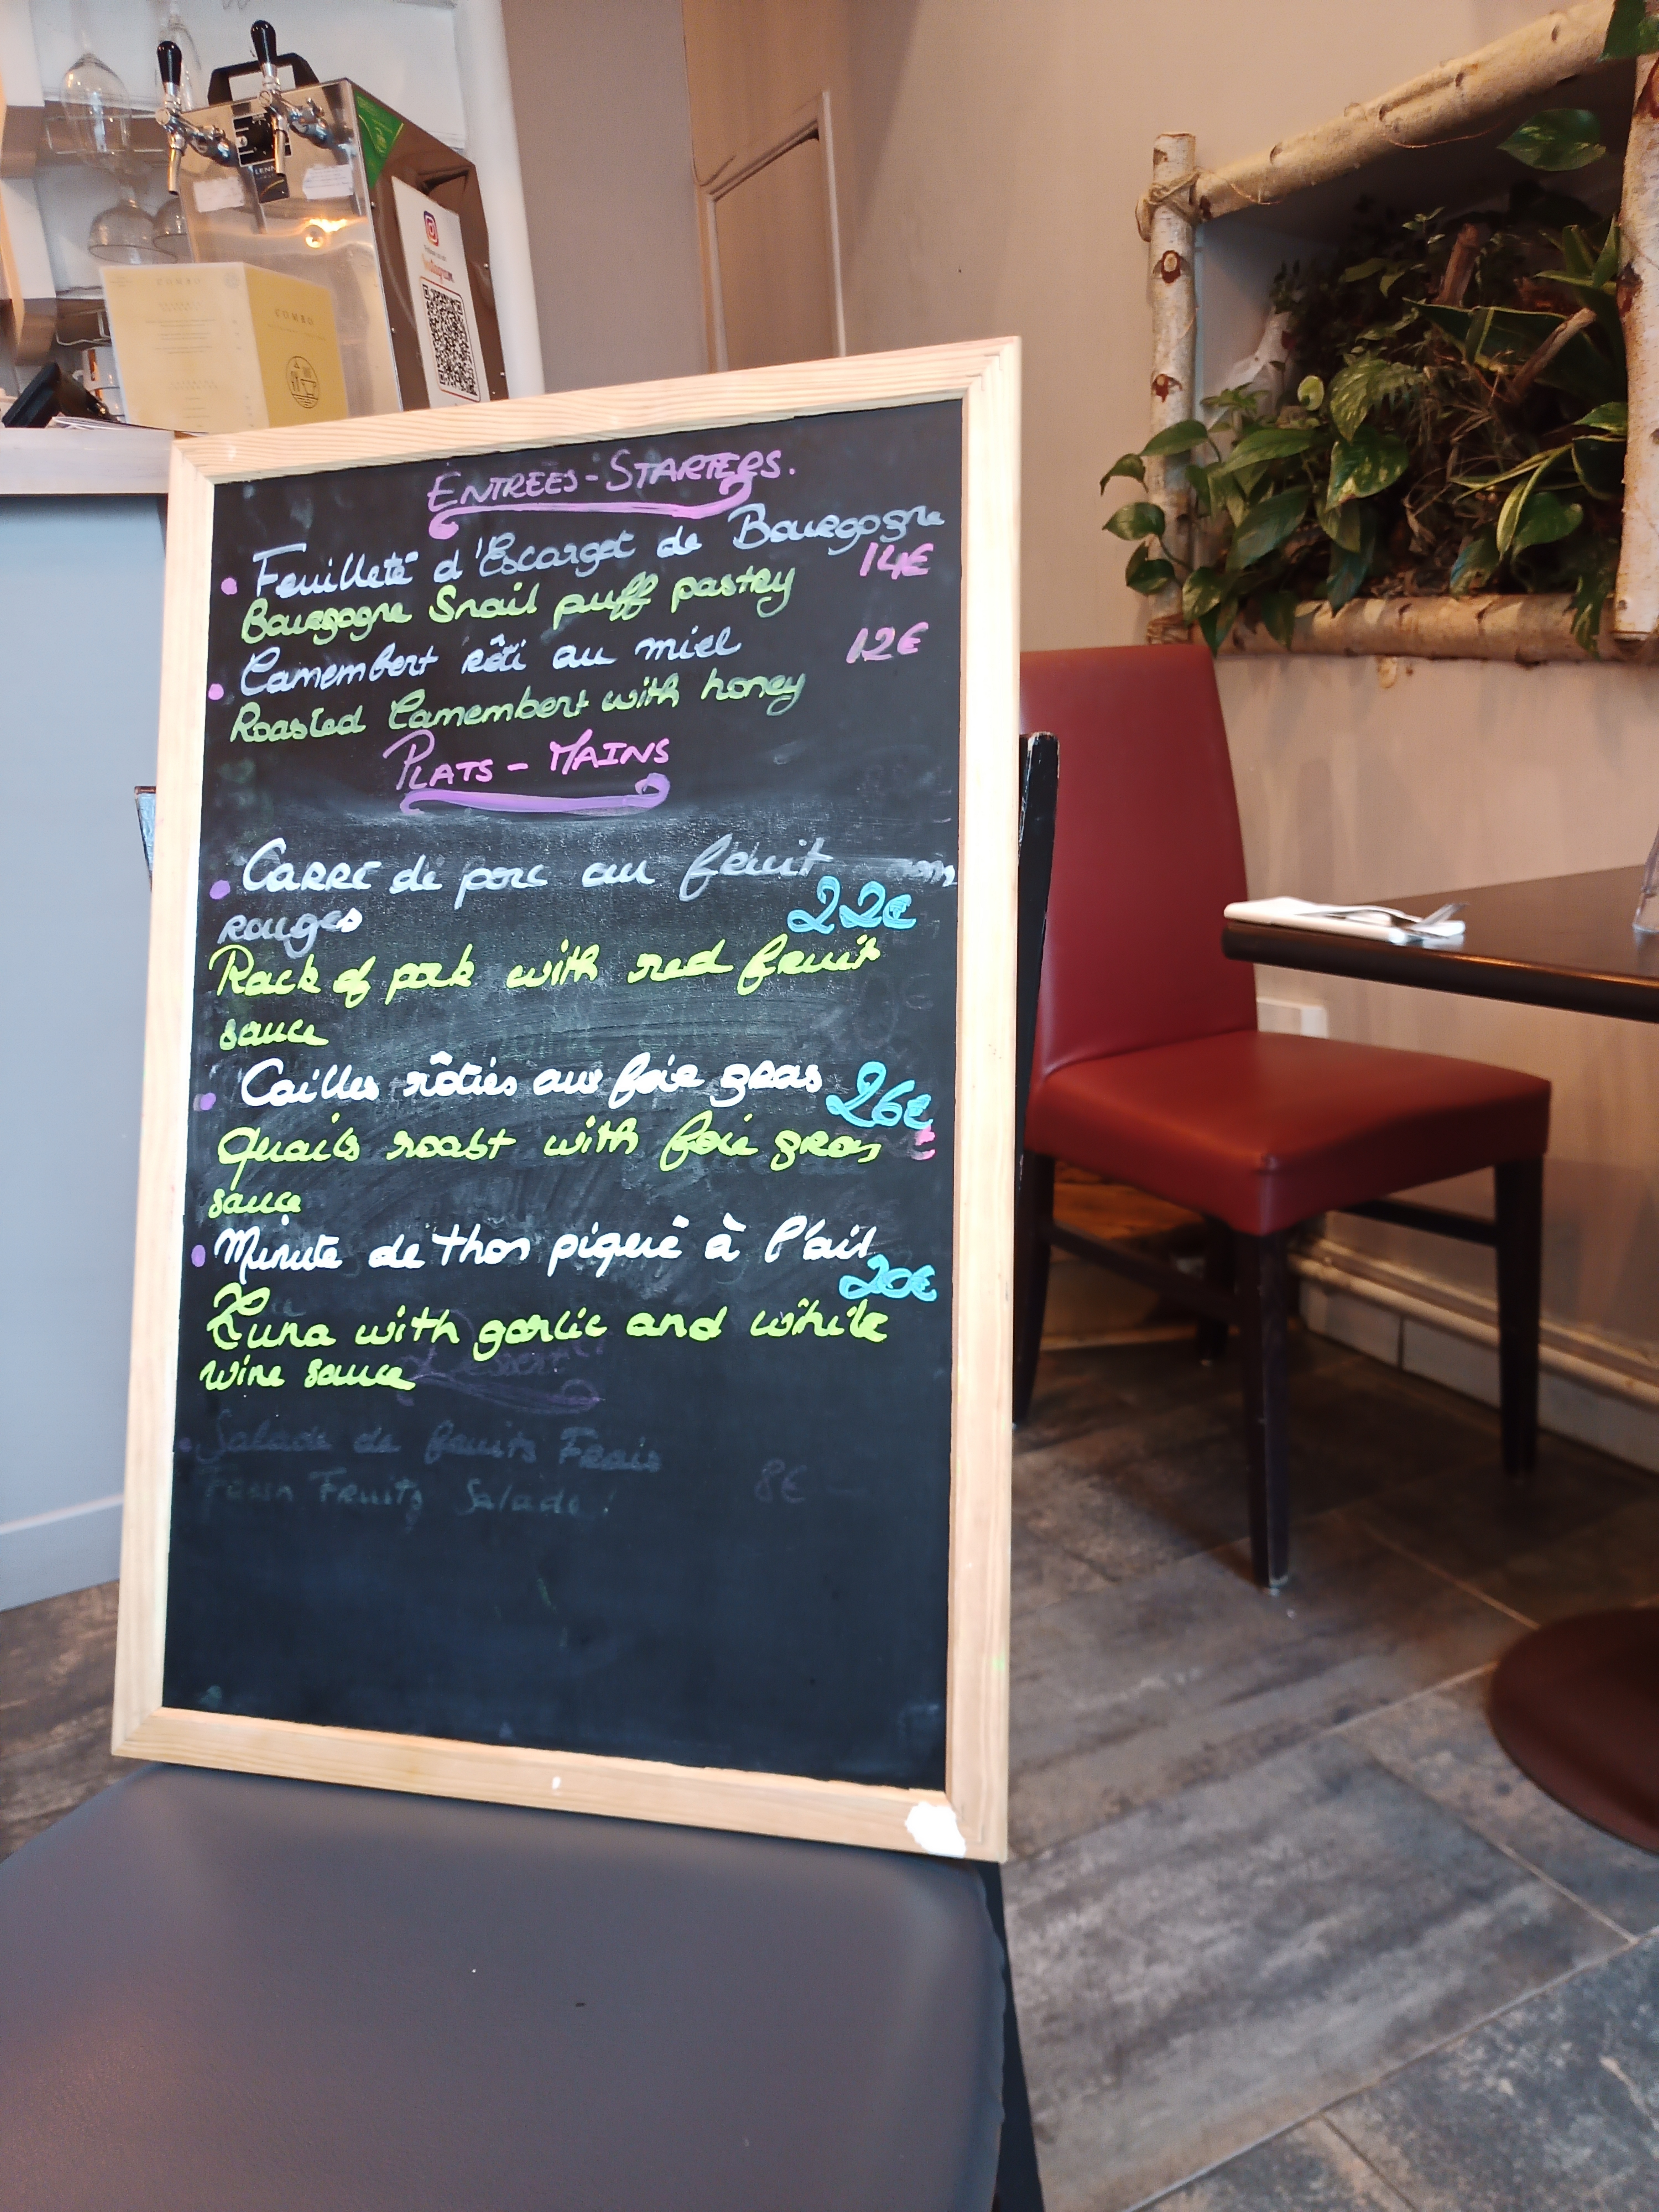 COMBO
Instagram
ENTRÉES - STARTERS.
Feuilleté d'Escargot de Bourgogne
14€
Bourgogne Snail puff pastry
Camembert rôti au miel
12€
Roasted Camembert with honey
PLATS - MAINS
CARRÉ de porc au fruit
rouges
22€
Rack of pork with red fruit
sauce
Cailles rôties au foie gras
26€
Quails roast with foie gras
sauce
Minute de thon piqué à l'ail
20€
Tuna with garlic and white
wine sauce
Dessert
Salade de fruits Frais
Fruits Salade
8€